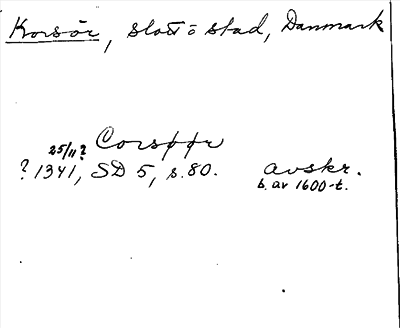 Korsör, slott o stad, Danmark
25/11? Corsøør
? 1341, SD 5, s. 80. avskr.
b. av 1600-t.